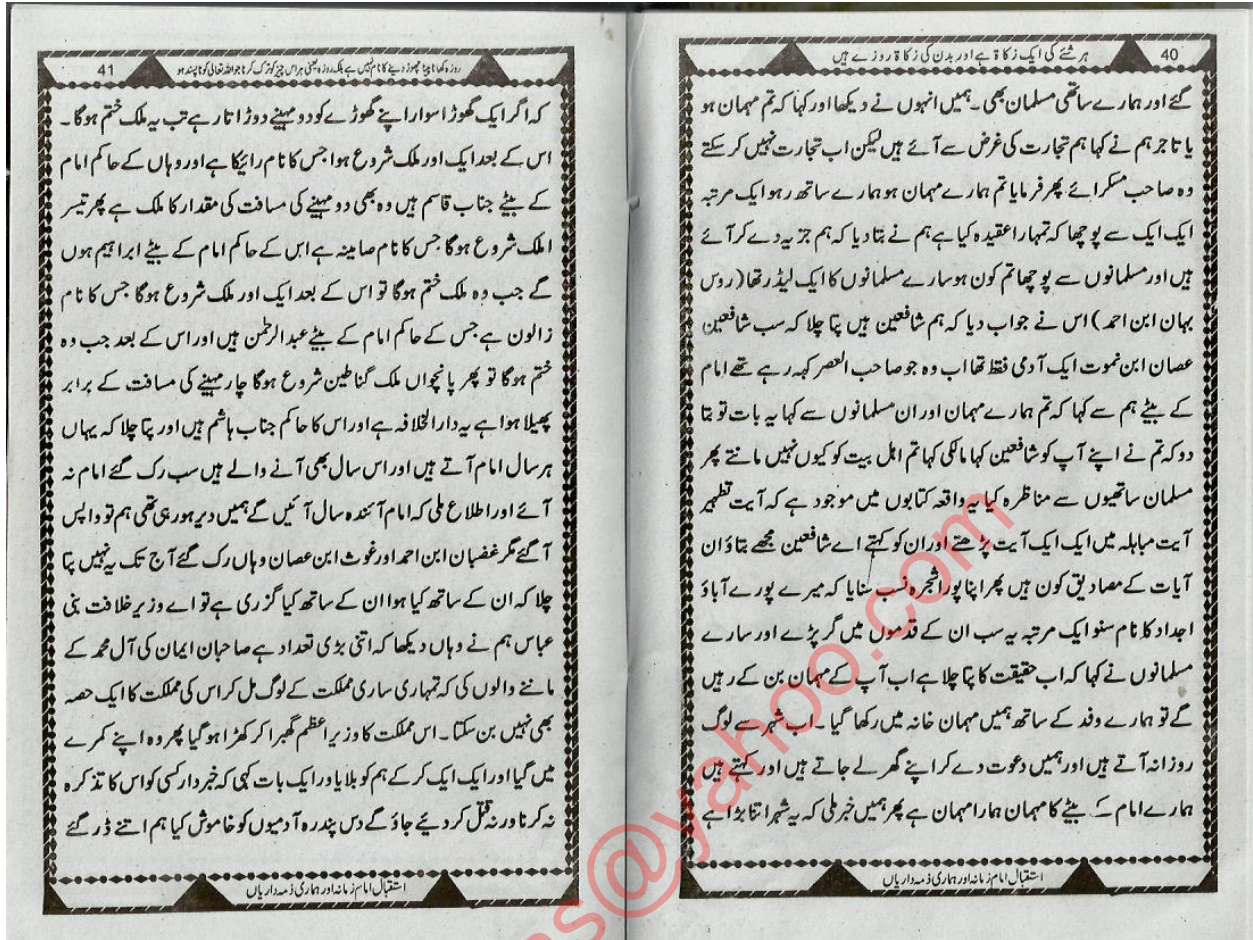 40
ہر شئے کی ایک زکاۃ ہے اور بدن کی زکاۃ روزے ہیں
گئے اور ہمارے ساتھی مسلمان بھی۔ ہمیں انہوں نے دیکھا اور کہا کہ تم مہمان ہو
یا تاجر ہم نے کہا ہم تجارت کی غرض سے آئے ہیں لیکن اب تجارت نہیں کر سکتے
وہ صاحب مسکرائے پھر فرمایا تم ہمارے مہمان ہو ہمارے ساتھ رہو ایک مرتبہ
ایک ایک سے پوچھا کہ تمہارا عقیدہ کیا ہے ہم نے بتا دیا کہ ہم جزیہ دے کر آئے
ہیں اور مسلمانوں سے پوچھا تم کون ہو سارے مسلمانوں کا ایک لیڈر تھا (روس
بہان ابن احمد) اس نے جواب دیا کہ ہم شافعین ہیں پتا چلا کہ سب شافعین
عصان ابن نموت ایک آدمی فقط تھا اب وہ جو صاحب العصر کہہ رہے تھے امام
کے بیٹے ہم سے کہا کہ تم ہمارے مہمان اور ان مسلمانوں سے کہا یہ بات تو بتا
دو کہ تم نے اپنے آپ کو شافعین کہا مالکی کہا تم اہل بیت کو کیوں نہیں مانتے پھر
مسلمان ساتھیوں سے مناظرہ کیا یہ واقعہ کتابوں میں موجود ہے کہ آیت تطہیر
آیت مباہلہ میں ایک ایک آیت پڑھتے اور ان کو کہتے اے شافعین مجھے بتاؤ ان
آیات کے مصادیق کون ہیں پھر اپنا پورا شجرہ نسب سنایا کہ میرے پورے آباؤ
اجداد کا نام سنو ایک مرتبہ یہ سب ان کے قدموں میں گر پڑے اور سارے
مسلمانوں نے کہا کہ اب حقیقت کا پتا چلا ہے اب آپ کے مہمان بن کے رہیں
گے تو ہمارے وفد کے ساتھ ہمیں مہمان خانہ میں رکھا گیا۔ اب شہر سے لوگ
روزانہ آتے ہیں اور ہمیں دعوت دے کر اپنے گھر لے جاتے ہیں اور کہتے ہیں
ہمارے امام کے بیٹے کا مہمان ہمارا مہمان ہے پھر ہمیں خبر ملی کہ یہ شہر اتنا بڑا ہے
استقبال امام زمانہ اور ہماری ذمہ داریاں
41
روزہ کھانا پینا چھوڑ دینے کا نام نہیں ہے بلکہ روزہ یعنی ہر اس چیز کو ترک کرنا جو اللہ تعالی کو نا پسند ہو
کہ اگر ایک گھوڑا سوار اپنے گھوڑے کو دو مہینے دوڑاتا رہے تب یہ ملک ختم ہوگا۔
اس کے بعد ایک اور ملک شروع ہوا جس کا نام رائیکا ہے اور وہاں کے حاکم امام
کے بیٹے جناب قاسم ہیں وہ بھی دو مہینے کی مسافت کی مقدار کا ملک ہے پھر تیسر
املک شروع ہوگا جس کا نام صامینہ ہے اس کے حاکم امام کے بیٹے ابراہیم ہوں
گے جب وہ ملک ختم ہوگا تو اس کے بعد ایک اور ملک شروع ہوگا جس کا نام
زالون ہے جس کے حاکم امام کے بیٹے عبدالرحمٰن ہیں اور اس کے بعد جب وہ
ختم ہوگا تو پھر پانچواں ملک گناطین شروع ہوگا چار مہینے کی مسافت کے برابر
پھیلا ہوا ہے یہ دارالخلافہ ہے اور اس کا حاکم جناب ہاشم ہیں اور پتا چلا کہ یہاں
ہر سال امام آتے ہیں اور اس سال بھی آنے والے ہیں سب رک گئے امام نہ
آئے اور اطلاع ملی کہ امام آئندہ سال آئیں گے ہمیں دیر ہو رہی تھی ہم تو واپس
آ گئے مگر غضبان ابن احمد اور غوث ابن عصان وہاں رک گئے آج تک یہ نہیں پتا
چلا کہ ان کے ساتھ کیا ہوا ان کے ساتھ کیا گزری ہے تو اے وزیر خلافت بنی
عباس ہم نے وہاں دیکھا کہ اتنی بڑی تعداد ہے صاحبان ایمان کی آل محمد کے
ماننے والوں کی کہ تمہاری ساری مملکت کے لوگ مل کر اس کی مملکت کا ایک حصہ
بھی نہیں بن سکتا۔ اس مملکت کا وزیراعظم گھبرا کر کھڑا ہو گیا پھر وہ اپنے کمرے
میں گیا اور ایک ایک کر کے ہم کو بلایا ور ایک بات کہی کہ خبردار کسی کو اس کا تذکرہ
نہ کرنا ورنہ قتل کر دیئے جاؤ گے دس پندرہ آدمیوں کو خاموش کیا ہم اتنے ڈر گئے
استقبال امام زمانہ اور ہماری ذمہ داریاں
s@yahoo.com